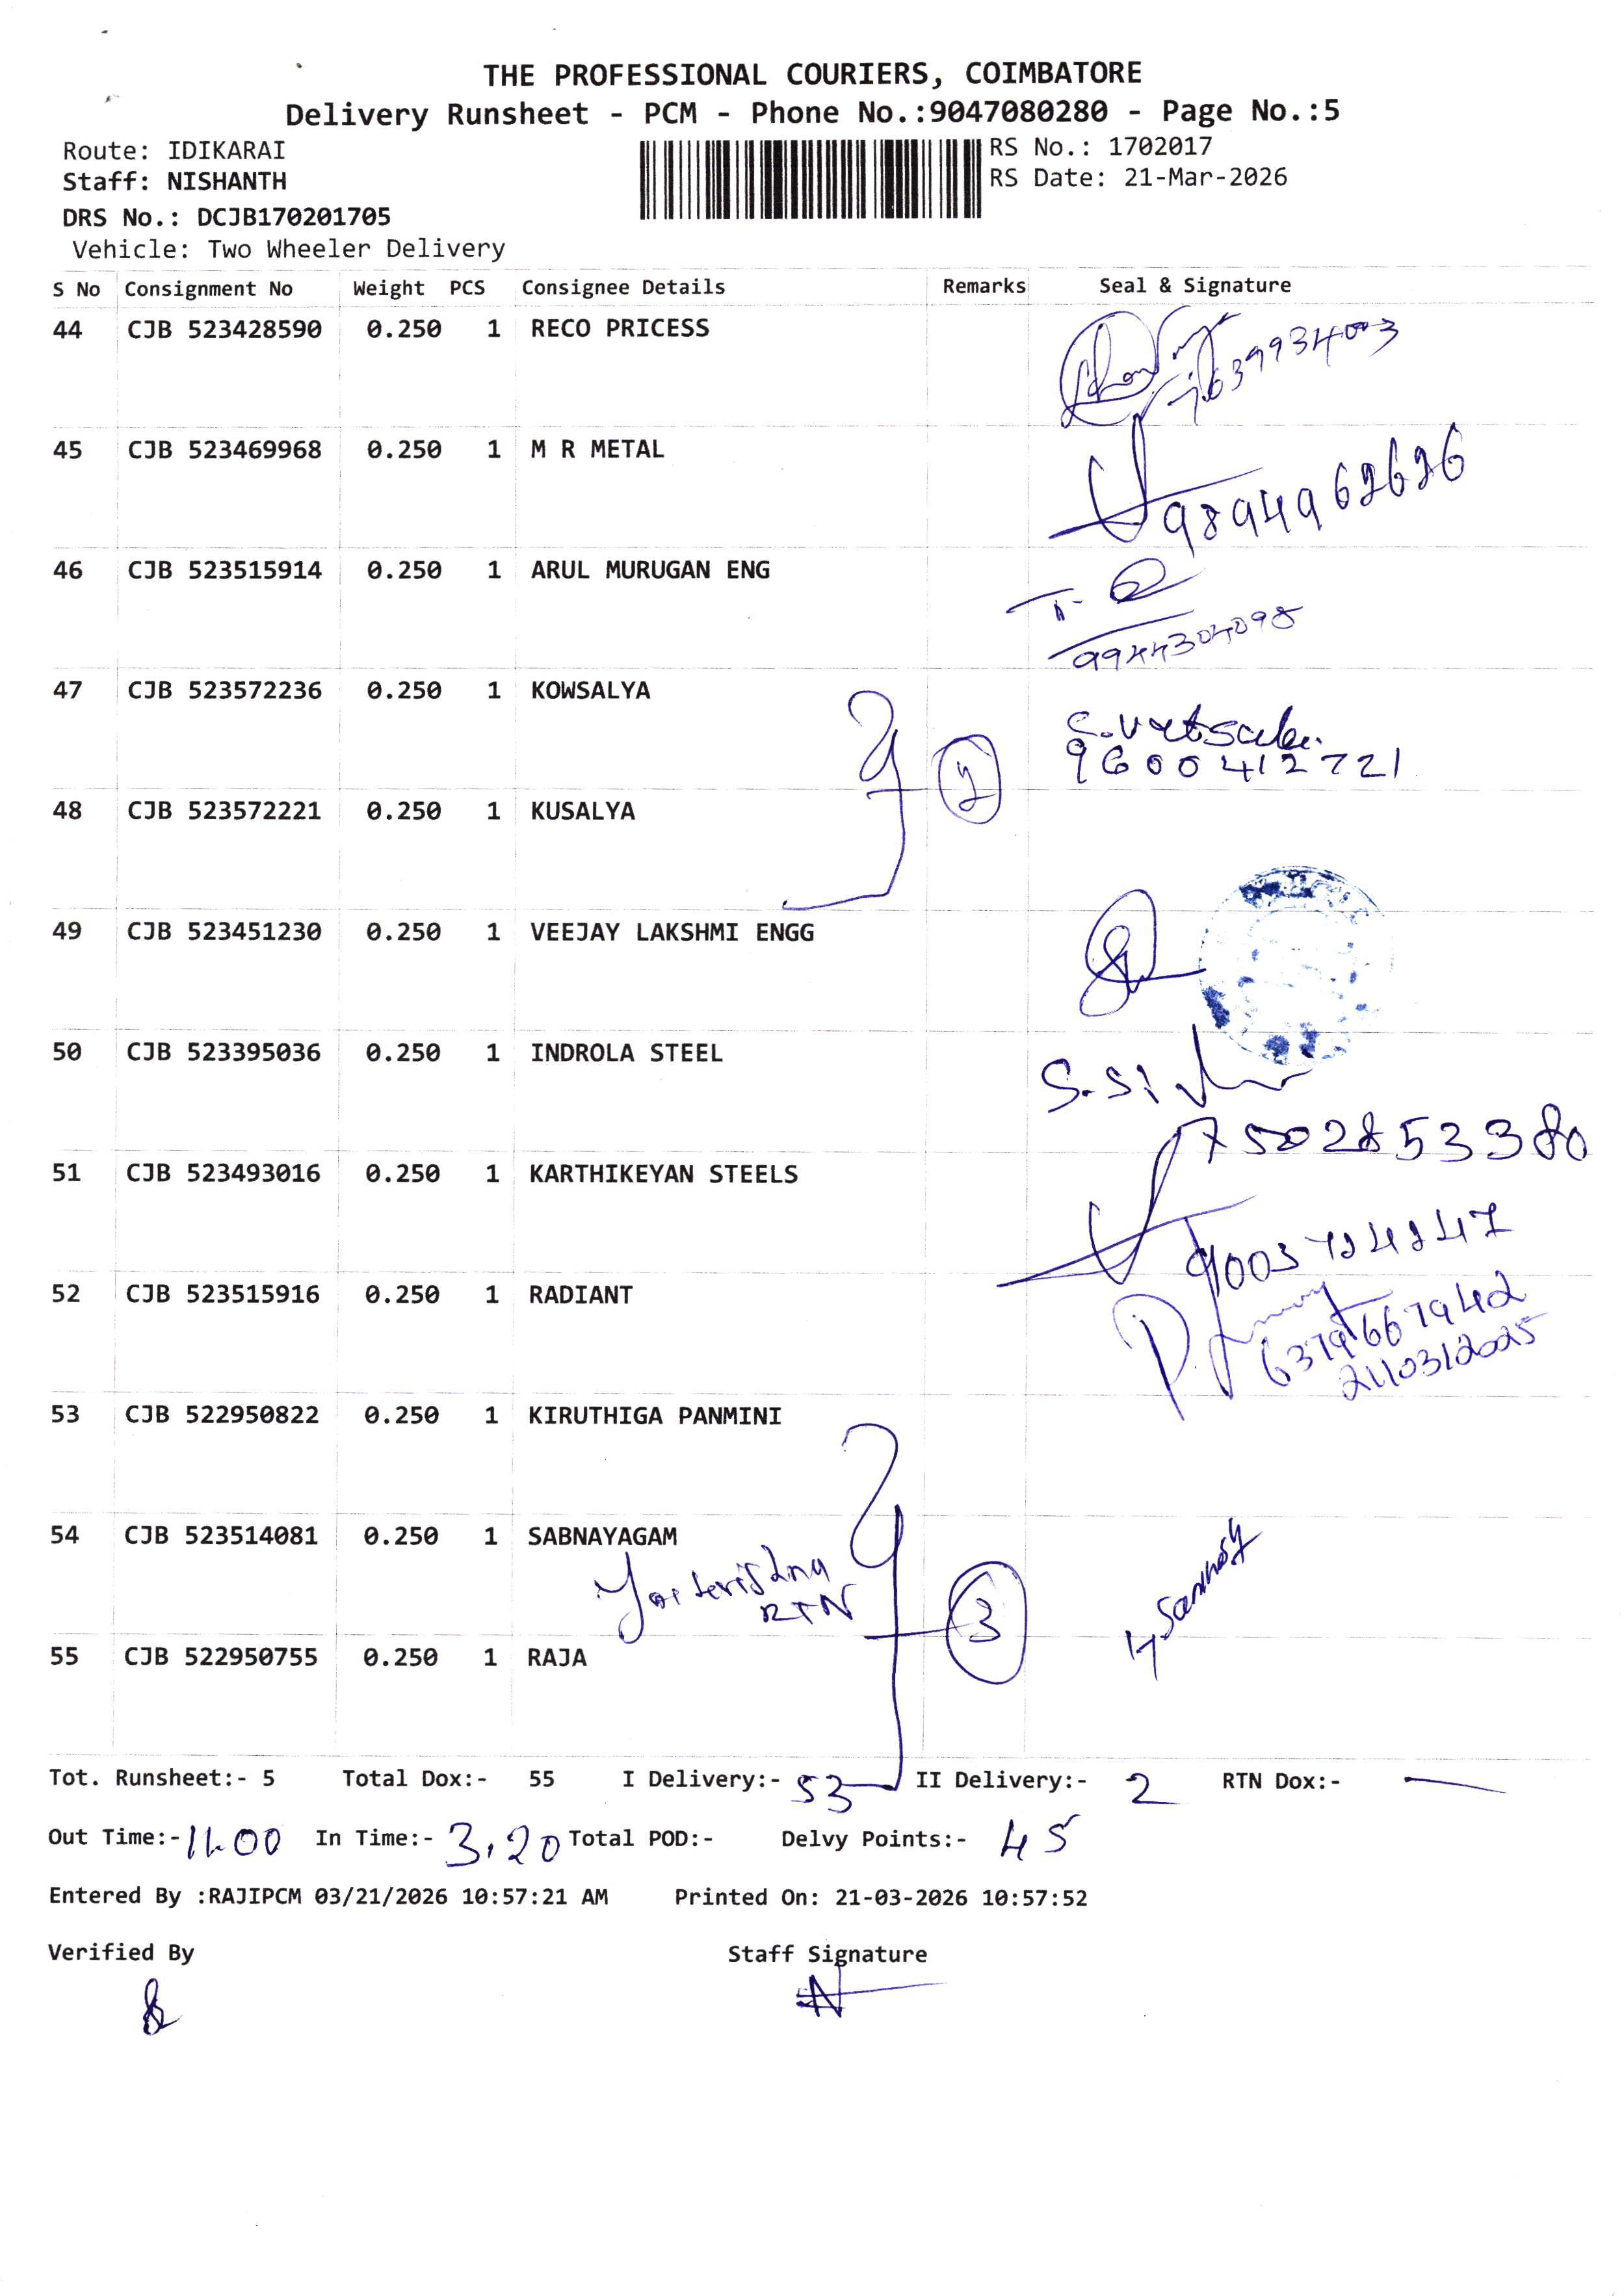 THE PROFESSIONAL COURIERS, COIMBATORE
Delivery Runsheet - PCM - Phone No.:9047080280 - Page No.:5
Route: IDIKARAI
RS No.: 1702017
Staff: NISHANTH
RS Date: 21-Mar-2026
DRS No.: DCJB170201705
Vehicle: Two Wheeler Delivery
S No Consignment No Weight PCS Consignee Details Remarks Seal & Signature
44 CJB 523428590 0.250 1 RECO PRICESS
7639934003
45 CJB 523469968 0.250 1 M R METAL
9894962626
46 CJB 523515914 0.250 1 ARUL MURUGAN ENG
9944304098
47 CJB 523572236 0.250 1 KOWSALYA
9600412721
48 CJB 523572221 0.250 1 KUSALYA
49 CJB 523451230 0.250 1 VEEJAY LAKSHMI ENGG
50 CJB 523395036 0.250 1 INDROLA STEEL
7502853380
51 CJB 523493016 0.250 1 KARTHIKEYAN STEELS
52 CJB 523515916 0.250 1 RADIANT
6379667942
21/03/2025
53 CJB 522950822 0.250 1 KIRUTHIGA PANMINI
54 CJB 523514081 0.250 1 SABNAYAGAM
RTN
3
55 CJB 522950755 0.250 1 RAJA
Tot. Runsheet:- 5 Total Dox:- 55 I Delivery:- 53 II Delivery:- 2 RTN Dox:- —
Out Time:- 11.00 In Time:- 3.20 Total POD:- Delvy Points:- 45
Entered By :RAJIPCM 03/21/2026 10:57:21 AM Printed On: 21-03-2026 10:57:52
Verified By Staff Signature